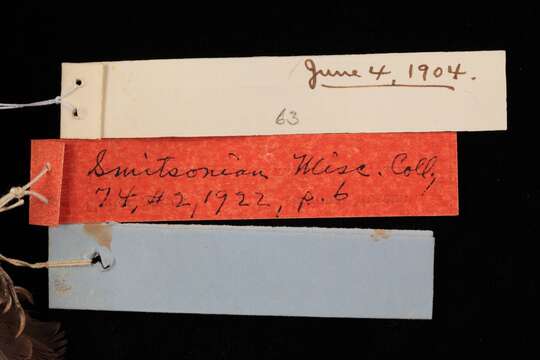 June 4, 1904.
63
Smitsonian Misc. Coll,
74, #2, 1922, p. 6